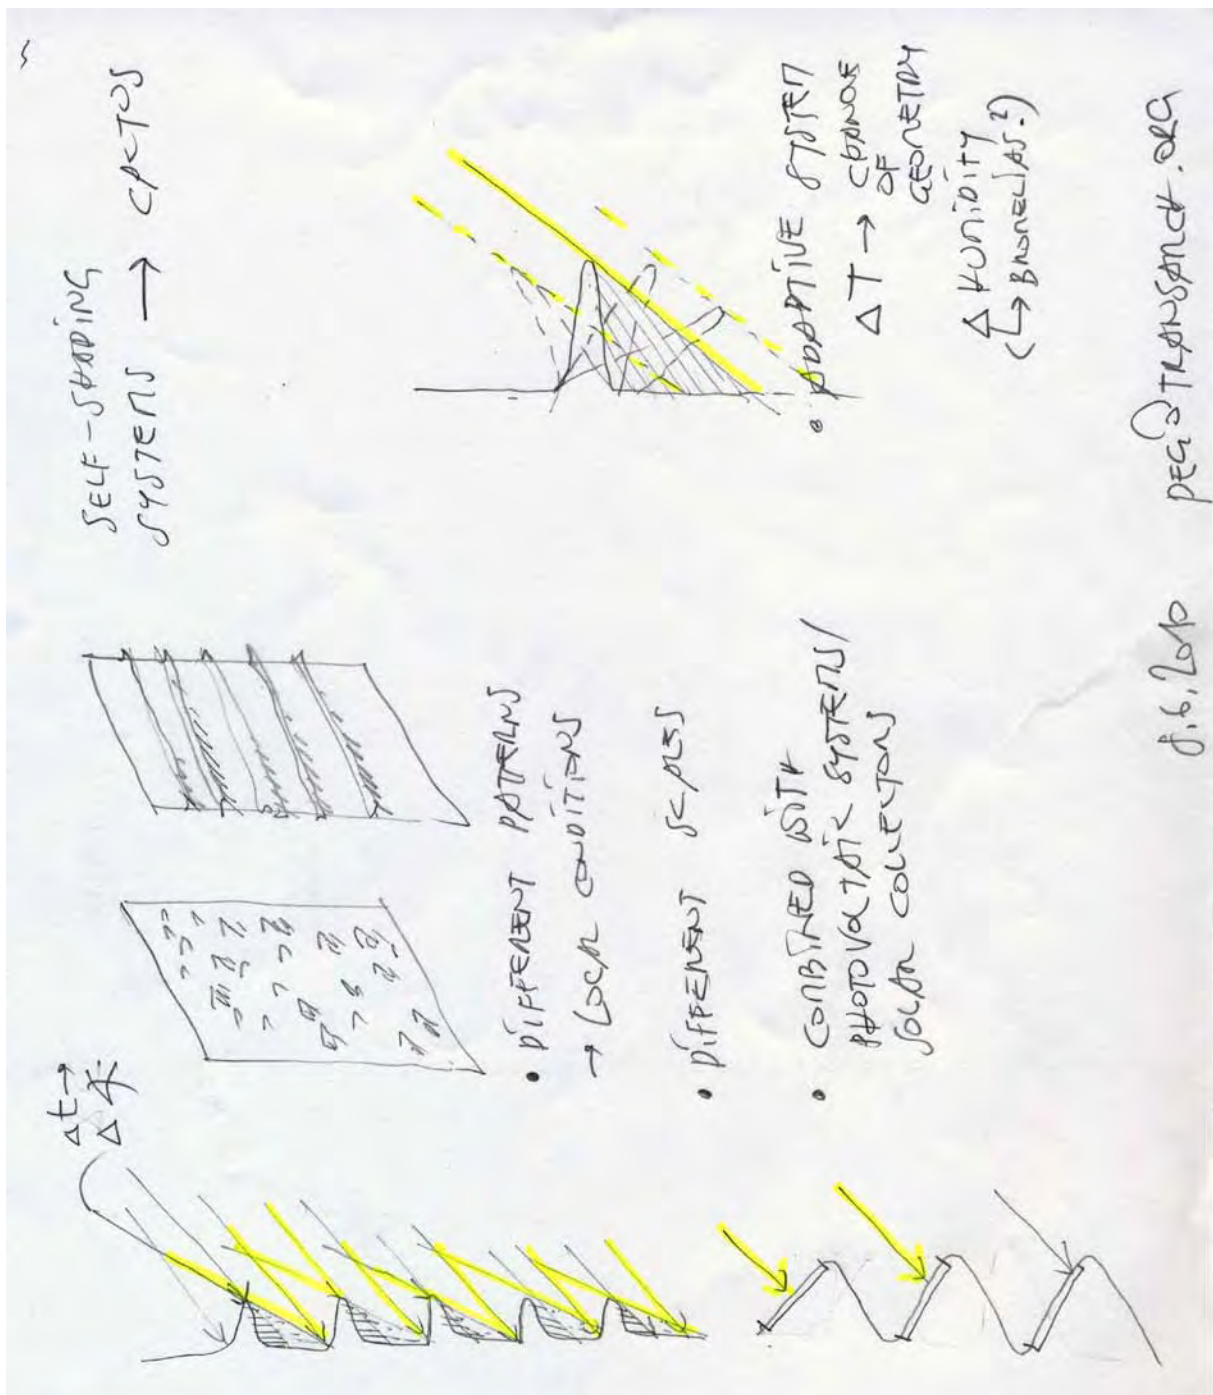 SELF-SHADING
SYSTEMS → CACTUS
Δt →
Δ
• DIFFERENT PATTERNS
→ LOCAL CONDITIONS
• DIFFERENT SCALES
• COMBINED WITH
PHOTOVOLTAIC SYSTEMS/
SOLAR COLLECTORS
• ADAPTIVE SYSTEM
ΔT → CHANGE
OF
GEOMETRY
Δ HUMIDITY
(↳ BROMELIAS?)